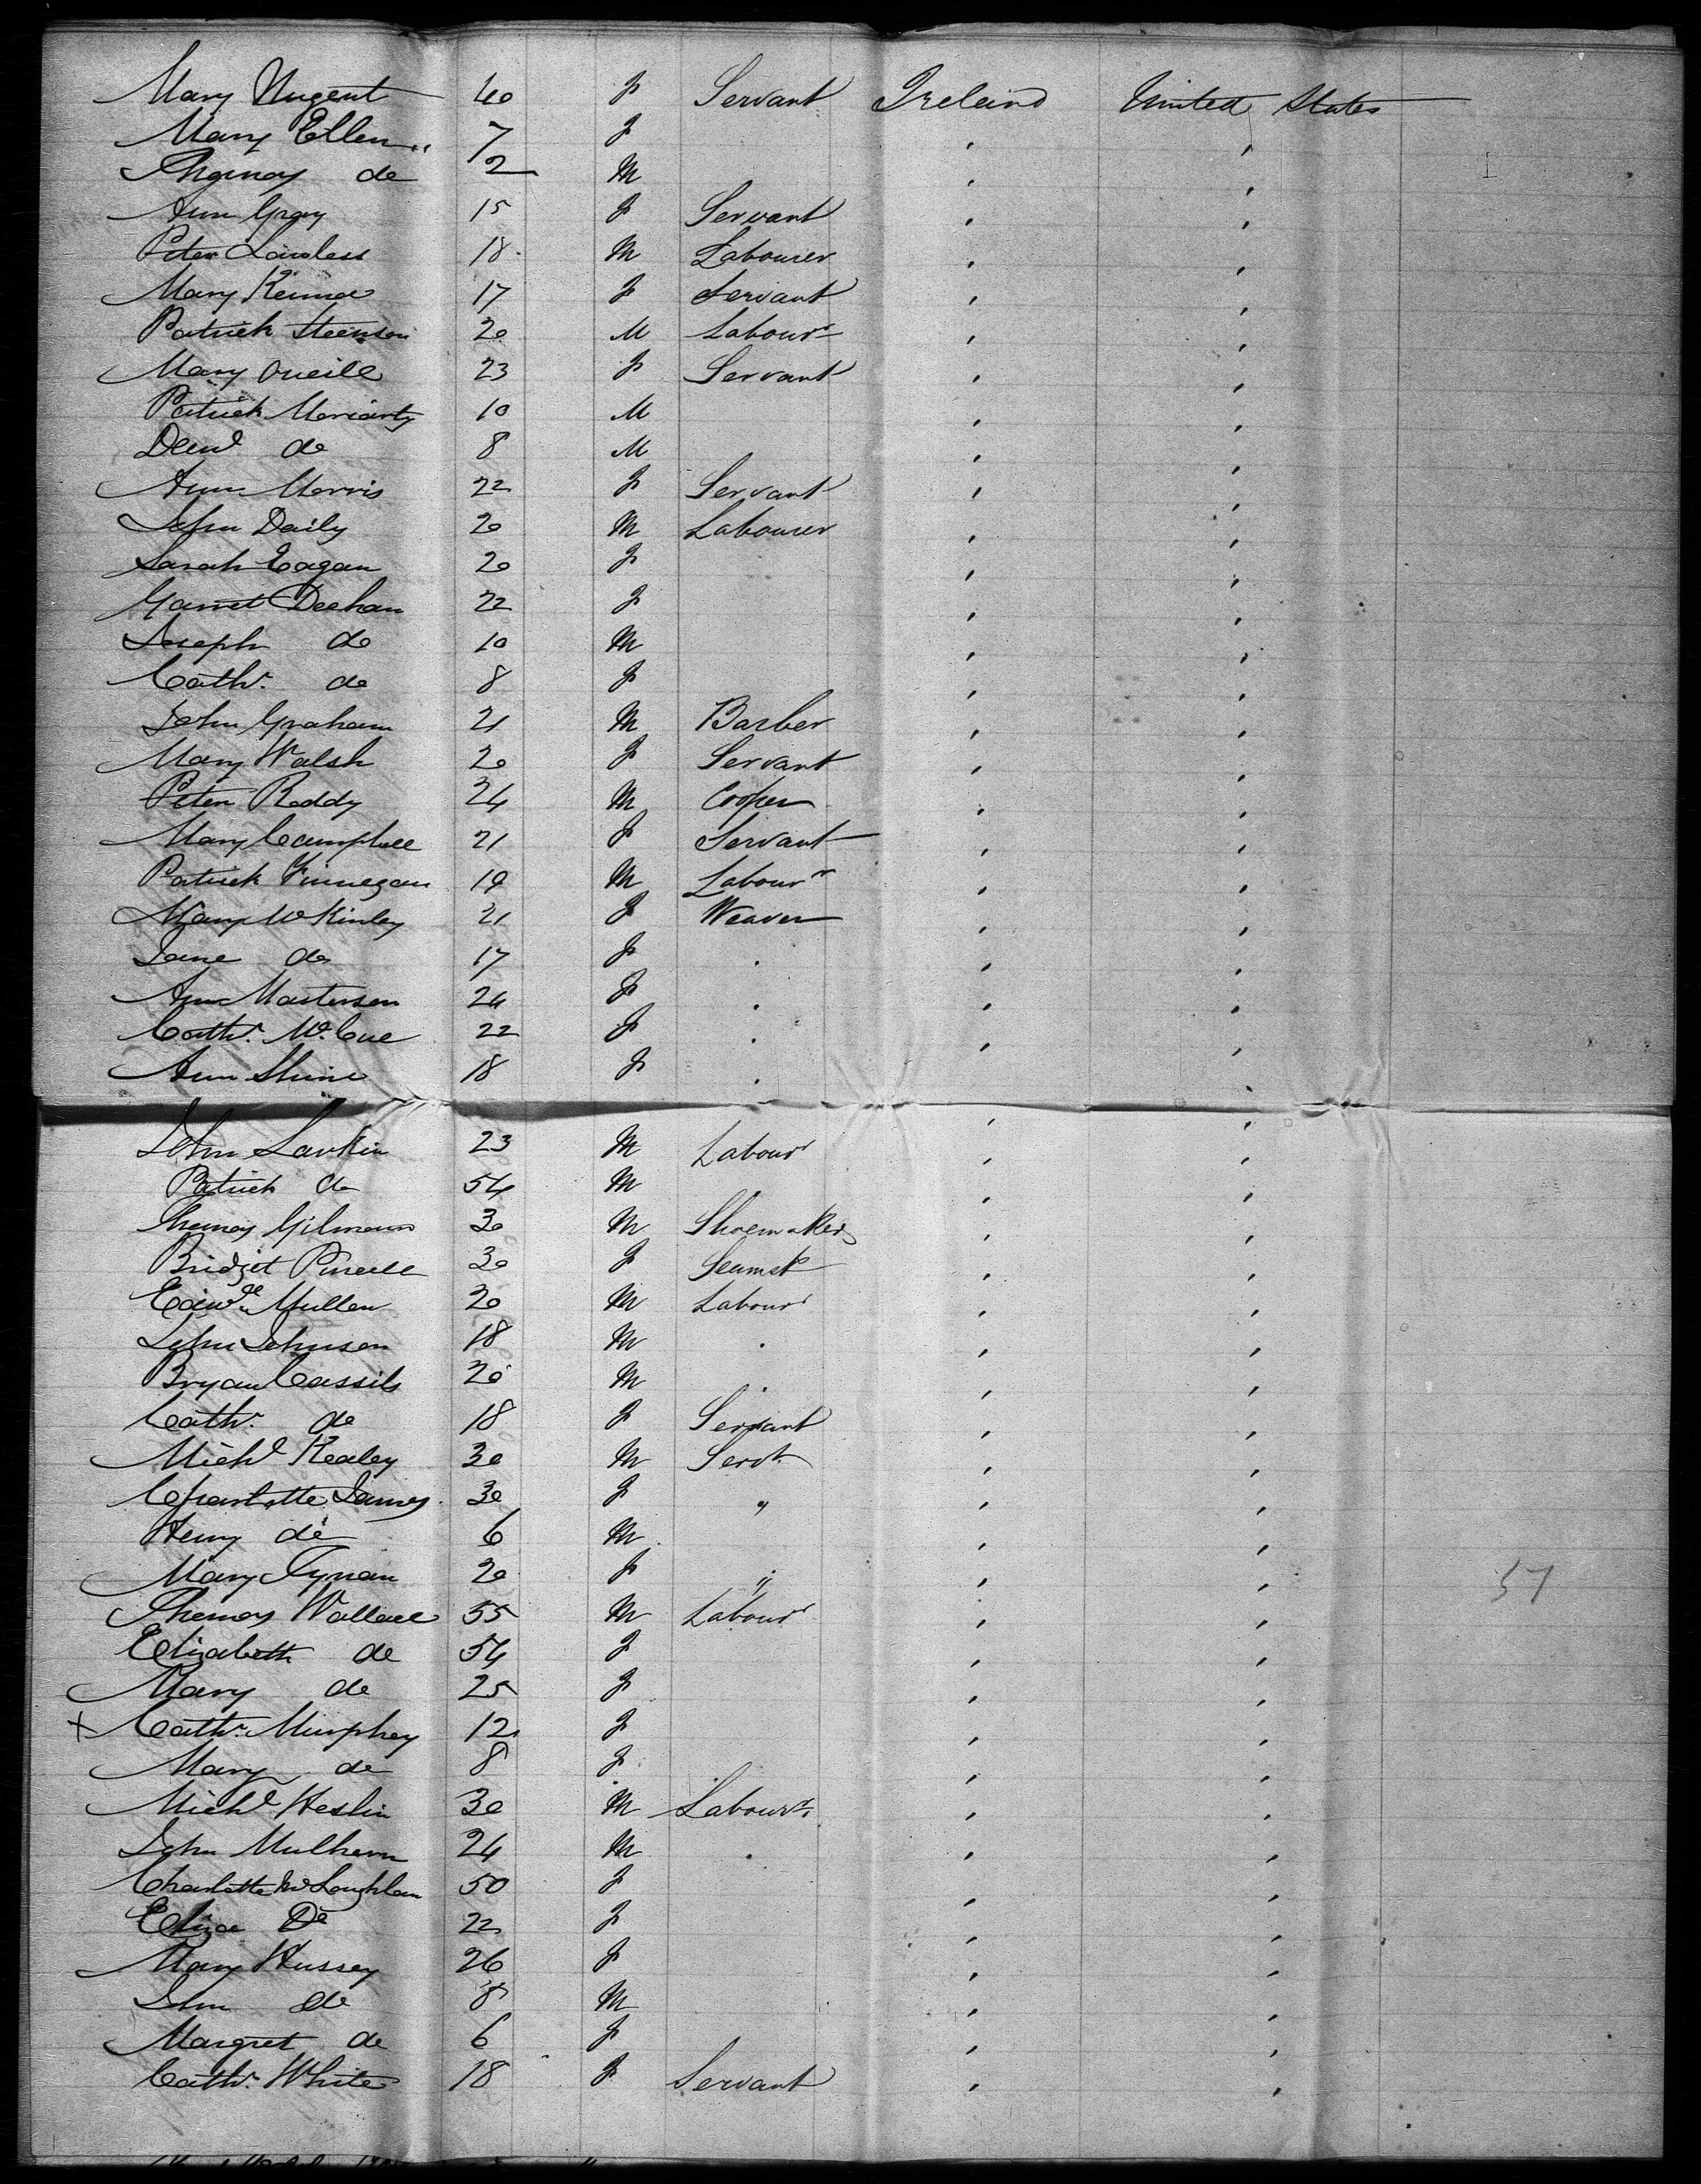 Mary Nugent 40 F Servant Ireland United States
Mary Ellen " 7 F ' '
Thomas do 2 M ' '
Ann Gray 15 F Servant ' '
Peter Lawless 18 M Labourer ' '
Mary Keirna 17 F Servant ' '
Patrick Steenson 20 M Labourr ' '
Mary Oneill 23 F Servant ' '
Patrick Moriarty 10 M ' '
do 8 M ' '
Ann Morris 22 F Servant ' '
John Daily 20 M Labourer ' '
Sarah Eagan 20 F ' '
Garret Deehan 22 F ' '
Joseph do 10 M ' '
Cathr. do 8 F ' '
John Graham 21 M Barber ' '
Mary Walsh 20 F Servant ' '
Peter Reddy 24 M Cooper ' '
Mary Campbell 21 F Servant ' '
Patrick Finnegan 19 M Labourr ' '
Mary McKinley 21 F Weaver ' '
Jane do 17 F . ' '
Ann Masterson 24 F . ' '
Cathr. McCue 22 F . ' '
Ann Shine 18 F . ' '
John Larkin 23 M Labourr ' '
Patrick do 54 M ' '
Thomas Gilmann 30 M Shoemaker ' '
Bridget 30 F Seamst ' '
Edwd Mullen 20 M Labourr ' '
John Johnson 18 M . ' '
Bryan Cassils 20 M . ' '
Cathr. do 18 F Servant ' '
Michl Kealey 30 M Servt. ' '
Charlotte James 30 F " ' '
Henry do 6 M ' '
Mary Tynan 20 F " ' '
Thomas Wallace 55 M Labourr ' '
Elizabeth do 54 F ' '
Mary do 25 F ' '
+ Cathr. Murphey 12 F ' '
Mary do 8 F ' '
Michl Heslin 30 M Labourr. ' '
John Mulhern 24 M . ' '
Charlotte McLoughlan 50 F ' '
Eliza Do 22 F ' '
Mary Hussey 26 F ' '
John do 8 M ' '
Margret do 6 F ' '
Cathr. White 18 F Servant ' '
57